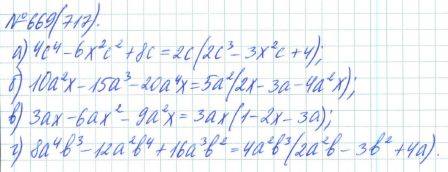 №669(717).
а) 4c⁴-6x²c²+8c=2c(2c³-3x²c+4);
б) 10a²x-15a³-20a⁴x=5a²(2x-3a-4a²x);
в) 3ax-6ax²-9a²x=3ax(1-2x-3a);
г) 8a⁴b³-12a²b⁴+16a³b²=4a²b³(2a²b-3b²+4a).